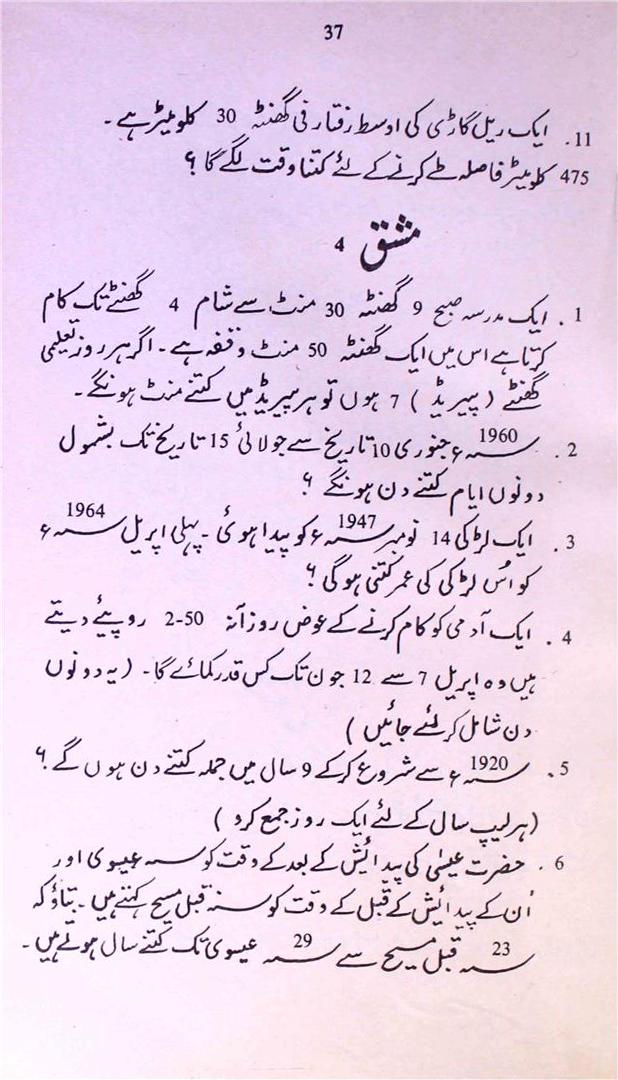 37
11. ایک ریل گاڑی کی اوسط رفتار فی گھنٹہ 30 کلومیٹر ہے۔
475 کلومیٹر فاصلہ طے کرنے کے لئے کتنا وقت لگے گا ؟
مشق 4
1. ایک مدرسہ صبح 9 گھنٹہ 30 منٹ سے شام 4 گھنٹے تک کام
کرتا ہے اس میں ایک گھنٹہ 50 منٹ وقفہ ہے۔ اگر ہر روز تعلیمی
گھنٹے ( پیریڈ ) 7 ہوں تو ہر پیریڈ میں کتنے منٹ ہونگے۔
2. سنہ 1960ء جنوری 10 تاریخ سے جولائی 15 تاریخ تک بشمول
دونوں ایام کتنے دن ہونگے ؟
3. ایک لڑکی 14 نومبر سنہ 1947ء کو پیدا ہوئی۔ پہلی اپریل سنہ 1964ء
کو اُس لڑکی کی عمر کتنی ہوگی ؟
4. ایک آدمی کو کام کرنے کے عوض روزانہ 50-2 روپیئے دیتے
ہیں وہ اپریل 7 سے 12 جون تک کس قدر کمائے گا۔ (یہ دونوں
دن شامل کرلئے جائیں )
5. سنہ 1920ء سے شروع کرکے 9 سال میں جملہ کتنے دن ہوں گے ؟
(ہر لیپ سال کے لئے ایک روز جمع کرو )
6. حضرت عیسٰی کی پیدائیش کے بعد کے وقت کو سنہ عیسوی اور
اُن کے پیدائیش کے قبل کے وقت کو سنہ قبل مسیح کہتے ہیں۔ بتاؤ کہ
سنہ 23 قبل مسیح سے سنہ 29 عیسوی تک کتنے سال ہوتے ہیں۔